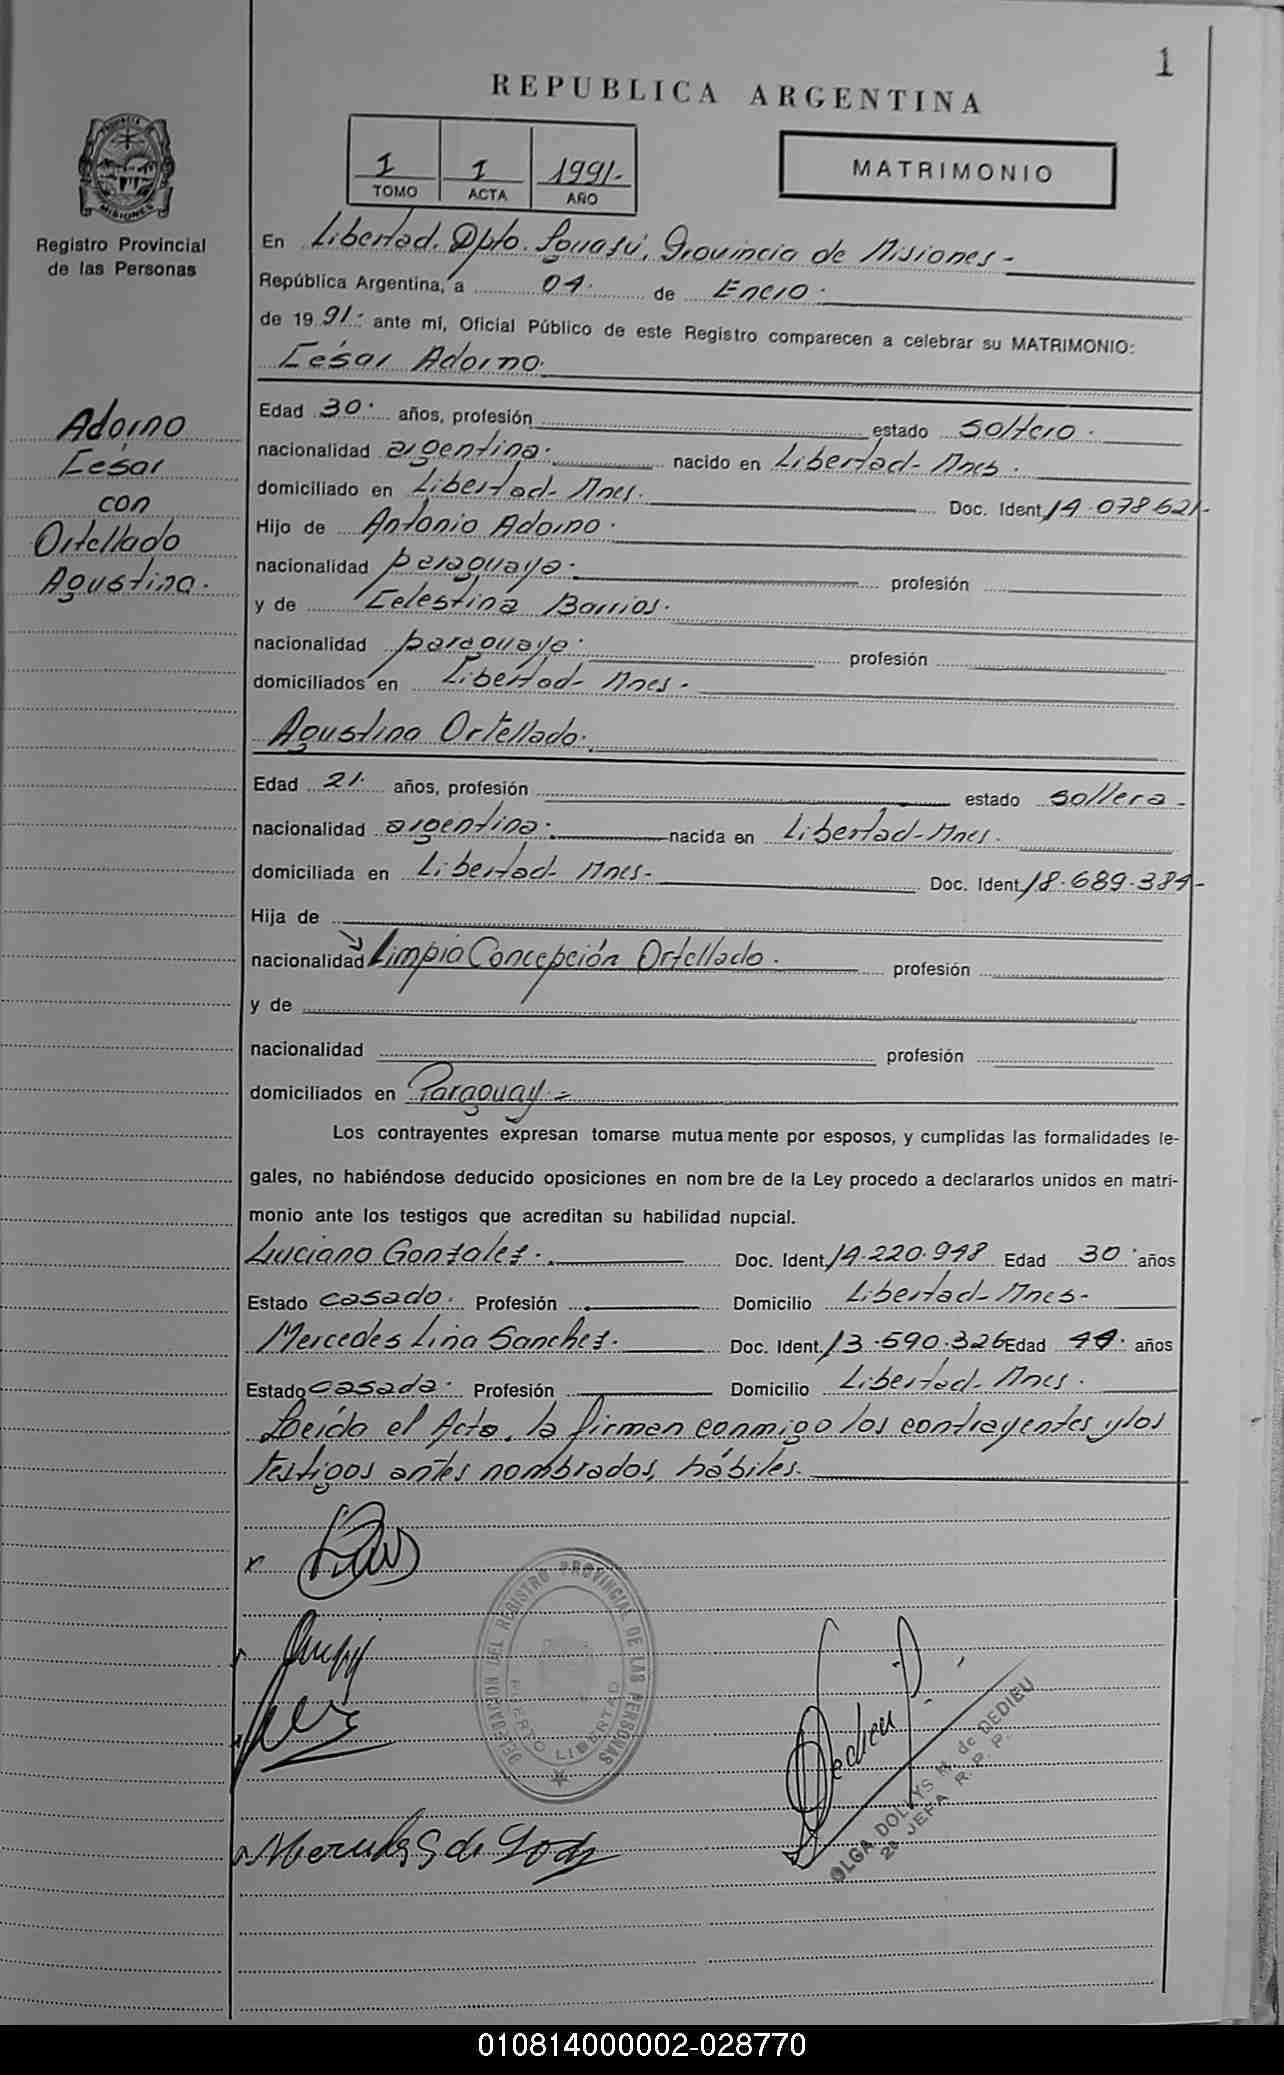 1
REPUBLICA ARGENTINA
1 TOMO
1 ACTA
1991.- AÑO
MATRIMONIO
PROVINCIA DE MISIONES
Registro Provincial
de las Personas
En Libertad, Dpto. Iguasú, Provincia de Misiones -
República Argentina, a 04. de Enero.
de 1991.- ante mí, Oficial Público de este Registro comparecen a celebrar su MATRIMONIO:
César Adorno.
Adorno
César
con
Ortellado
Agustina.
Edad 30. años, profesión estado soltero.
nacionalidad argentina. nacido en Libertad- Mnes.
domiciliado en Libertad- Mnes. Doc. Ident. 14.078621-
Hijo de Antonio Adorno.
nacionalidad paraguaya. profesión
y de Celestina Barrios.
nacionalidad paraguaya. profesión
domiciliados en Libertad- Mnes.
Agustina Ortellado.
Edad 21. años, profesión estado soltera-
nacionalidad argentina. nacida en Libertad-Mnes.
domiciliada en Libertad- Mnes- Doc. Ident. 18.689.384-
Hija de
nacionalidad Limpio Concepción Ortellado. profesión
y de
nacionalidad profesión
domiciliados en Paraguay.=
Los contrayentes expresan tomarse mutuamente por esposos, y cumplidas las formalidades le-
gales, no habiéndose deducido oposiciones en nombre de la Ley procedo a declararlos unidos en matri-
monio ante los testigos que acreditan su habilidad nupcial.
Luciano Gonzalez. Doc. Ident. 14.220.948 Edad 30. años
Estado casado. Profesión Domicilio Libertad- Mnes-
Mercedes Lina Sanchez. Doc. Ident. 13.590.326 Edad 44. años
Estado casada. Profesión Domicilio Libertad- Mnes.
Leída el Acta, la firman conmigo los contrayentes y los
testigos antes nombrados, hábiles.
DELEGACION DEL REGISTRO PROVINCIAL DE LAS PERSONAS
PUERTO LIBERTAD
Dedieu
OLGA DOLLYS M. de DEDIEU
2a JEFA R. P. P.
Mercedes S de
010814000002-028770